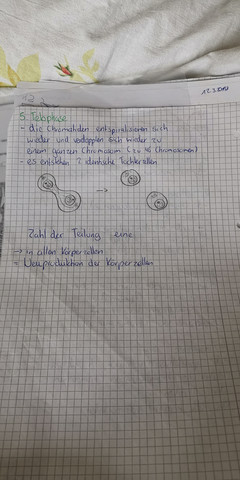 5. Telophase
- die Chromatiden entspiralisieren sich
wieder und verdoppeln sich wieder zu
einem ganzen Chromosom (zu 46 Chromosomen)
- es entstehen 2 identische Tochterzellen
Zahl der Teilung eine
→ in allen Körperzellen
= Neuproduktion der Körperzellen